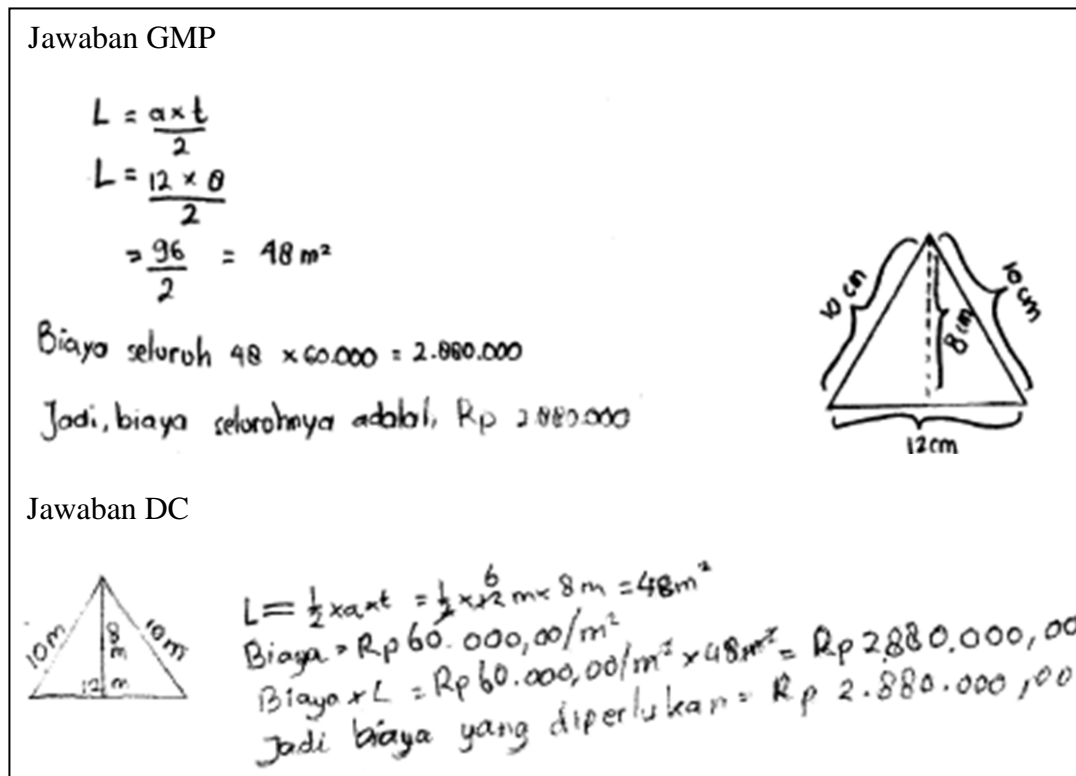 Jawaban GMP
L = a × t / 2
L = 12 × 8 / 2
= 96 / 2 = 48 m²
Biaya seluruh 48 × 60.000 = 2.880.000
Jadi, biaya seluruhnya adalah, Rp 2.880.000
10 cm
10 cm
8 cm
12 cm
Jawaban DC
10 m
8 m
10 m
12 m
L = ½ × a × t = ½ × 12 6 m × 8 m = 48 m²
Biaya = Rp 60.000,00/m²
Biaya × L = Rp 60.000,00/m² × 48 m² = Rp 2.880.000,00
Jadi biaya yang diperlukan = Rp 2.880.000,00